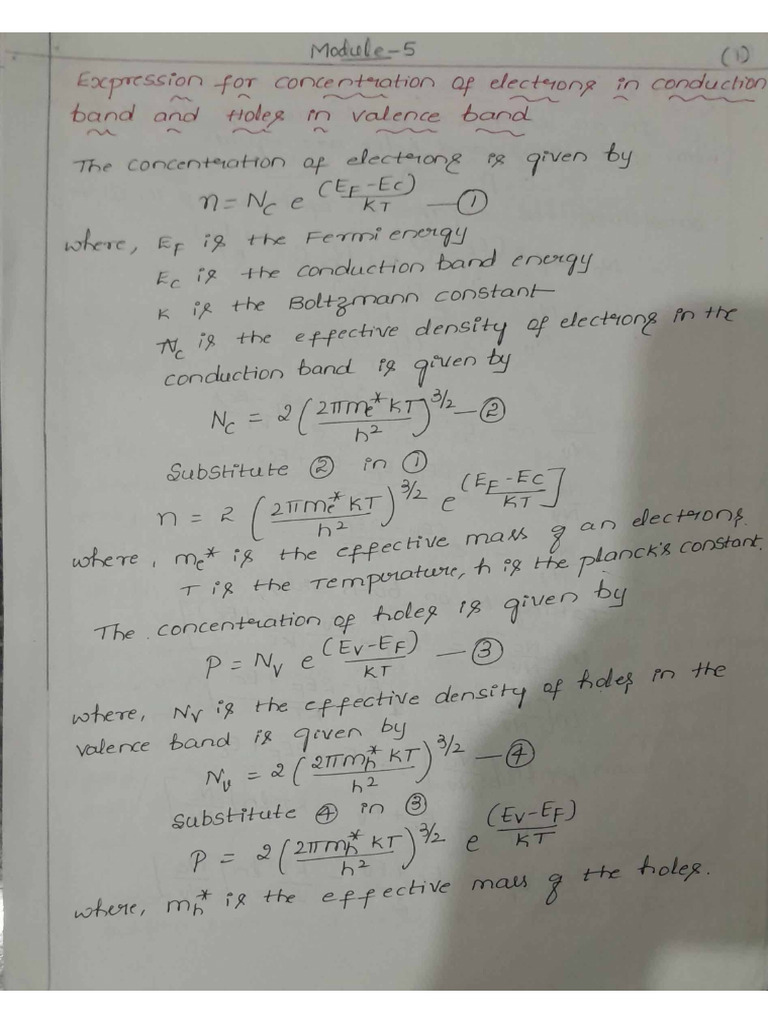 Module-5
(1)
Expression for concentration of electrons in conduction
band and Holes in valence band
The concentration of electrons is given by
n = N_C e^{(E_F - E_C)/KT} — ①
where, E_F is the Fermi energy
E_C is the conduction band energy
K is the Boltzmann constant
N_C is the effective density of electrons in the
conduction band is given by
N_C = 2 (2πm_e* KT / h²)^{3/2} — ②
Substitute ② in ①
n = 2 (2πm_e* KT / h²)^{3/2} e^{(E_F - E_C / KT]}
where, m_e* is the effective mass of an electrons.
T is the Temperature, h is the planck's constant.
The concentration of holes is given by
P = N_V e^{(E_V - E_F)/KT} — ③
where, N_V is the effective density of holes in the
valence band is given by
N_V = 2 (2πm_h* KT / h²)^{3/2} — ④
Substitute ④ in ③
P = 2 (2πm_h* KT / h²)^{3/2} e^{(E_V - E_F)/KT}
where, m_h* is the effective mass of the holes.